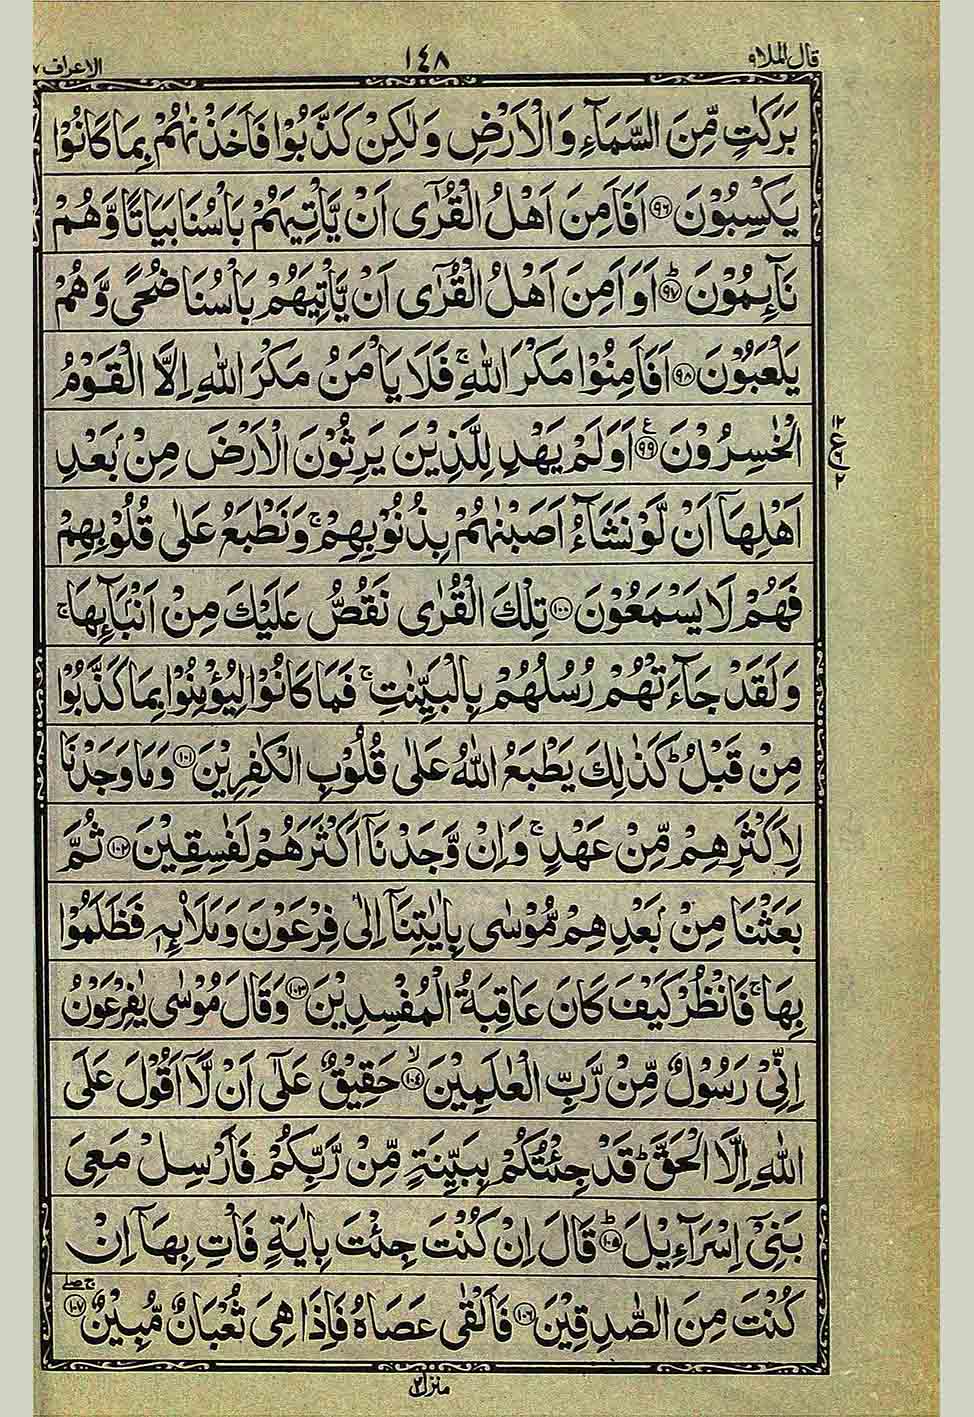 قال الملاو ١٤٨ الاعراف ٧
بَرَكٰتٍ مِّنَ السَّمَآءِ وَالْاَرْضِ وَلٰكِنْ كَذَّبُوْا فَاَخَذْنٰهُمْ بِمَا كَانُوْا
يَكْسِبُوْنَ ﴿٩٦﴾ اَفَاَمِنَ اَهْلُ الْقُرٰٓى اَنْ يَّاْتِيَهُمْ بَاْسُنَا بَيَاتًا وَّهُمْ
نَآئِمُوْنَ ؕ﴿٩٧﴾ اَوَاَمِنَ اَهْلُ الْقُرٰٓى اَنْ يَّاْتِيَهُمْ بَاْسُنَا ضُحًى وَّهُمْ
يَلْعَبُوْنَ ﴿٩٨﴾ اَفَاَمِنُوْا مَكْرَ اللّٰهِ ۚ فَلَا يَاْمَنُ مَكْرَ اللّٰهِ اِلَّا الْقَوْمُ
الْخٰسِرُوْنَ ﴿٩٩﴾ ع اَوَلَمْ يَهْدِ لِلَّذِيْنَ يَرِثُوْنَ الْاَرْضَ مِنْۢ بَعْدِ
١٢ ع ٩ ٢
اَهْلِهَاۤ اَنْ لَّوْ نَشَآءُ اَصَبْنٰهُمْ بِذُنُوْبِهِمْ ۚ وَنَطْبَعُ عَلٰى قُلُوْبِهِمْ
فَهُمْ لَا يَسْمَعُوْنَ ﴿١٠٠﴾ تِلْكَ الْقُرٰى نَقُصُّ عَلَيْكَ مِنْ اَنْۢبَآئِهَا ۚ
وَلَقَدْ جَآءَتْهُمْ رُسُلُهُمْ بِالْبَيِّنٰتِ ۚ فَمَا كَانُوْا لِيُؤْمِنُوْا بِمَا كَذَّبُوْا
مِنْ قَبْلُ ؕ كَذٰلِكَ يَطْبَعُ اللّٰهُ عَلٰى قُلُوْبِ الْكٰفِرِيْنَ ﴿١٠١﴾ وَمَا وَجَدْنَا
لِاَكْثَرِهِمْ مِّنْ عَهْدٍ ۚ وَاِنْ وَّجَدْنَاۤ اَكْثَرَهُمْ لَفٰسِقِيْنَ ﴿١٠٢﴾ ثُمَّ
بَعَثْنَا مِنْۢ بَعْدِهِمْ مُّوْسٰى بِاٰيٰتِنَاۤ اِلٰى فِرْعَوْنَ وَمَلَا۟ئِهٖ فَظَلَمُوْا
بِهَا ۚ فَانْظُرْ كَيْفَ كَانَ عَاقِبَةُ الْمُفْسِدِيْنَ ﴿١٠٣﴾ وَقَالَ مُوْسٰى يٰفِرْعَوْنُ
اِنِّيْ رَسُوْلٌ مِّنْ رَّبِّ الْعٰلَمِيْنَ ۙ﴿١٠٤﴾ حَقِيْقٌ عَلٰٓى اَنْ لَّاۤ اَقُوْلَ عَلَى
اللّٰهِ اِلَّا الْحَقَّ ؕ قَدْ جِئْتُكُمْ بِبَيِّنَةٍ مِّنْ رَّبِّكُمْ فَاَرْسِلْ مَعِيَ
بَنِيْٓ اِسْرَآءِيْلَ ؕ﴿١٠٥﴾ قَالَ اِنْ كُنْتَ جِئْتَ بِاٰيَةٍ فَاْتِ بِهَاۤ اِنْ
كُنْتَ مِنَ الصّٰدِقِيْنَ ﴿١٠٦﴾ فَاَلْقٰى عَصَاهُ فَاِذَا هِيَ ثُعْبَانٌ مُّبِيْنٌ ۚۖ﴿١٠٧﴾
منزل ٢